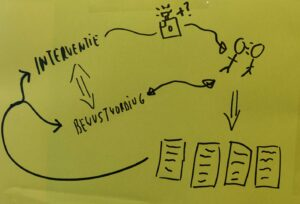 INTERVENTIE
+?
BEWUSTWORDING